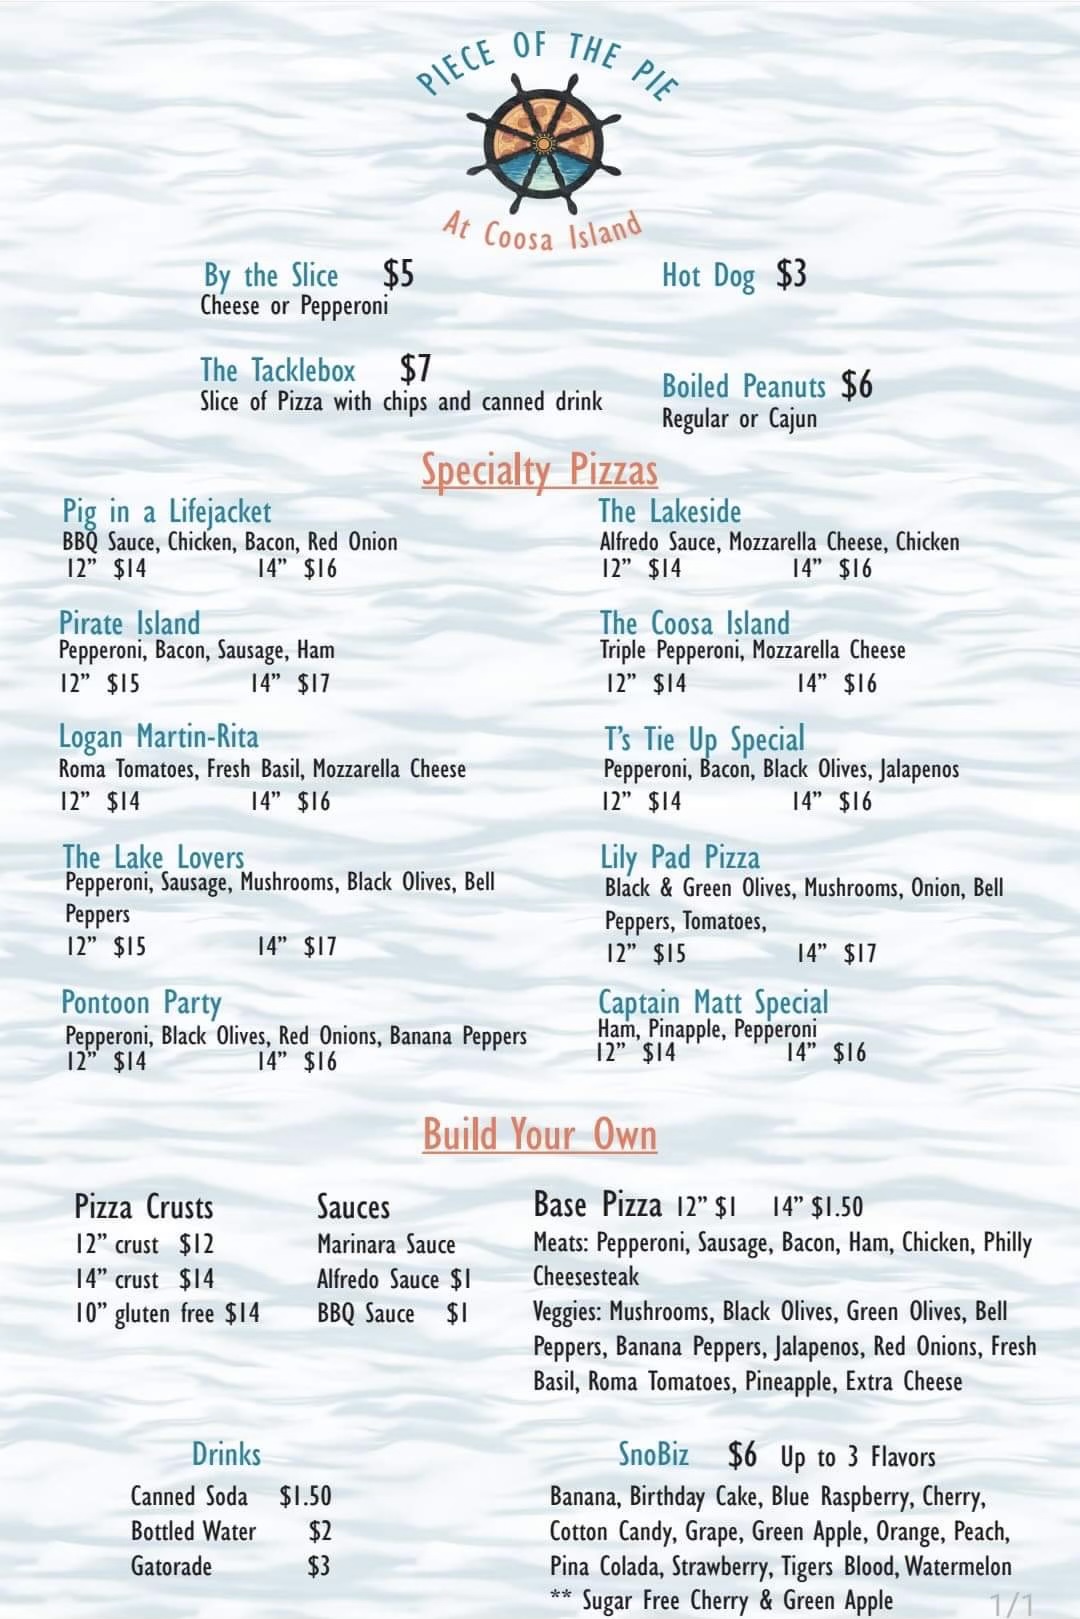 PIECE OF THE PIE
At Coosa Island
By the Slice $5
Cheese or Pepperoni
Hot Dog $3
The Tacklebox $7
Slice of Pizza with chips and canned drink
Boiled Peanuts $6
Regular or Cajun
Specialty Pizzas
Pig in a Lifejacket
BBQ Sauce, Chicken, Bacon, Red Onion
12” $14 14” $16
The Lakeside
Alfredo Sauce, Mozzarella Cheese, Chicken
12” $14 14” $16
Pirate Island
Pepperoni, Bacon, Sausage, Ham
12” $15 14” $17
The Coosa Island
Triple Pepperoni, Mozzarella Cheese
12” $14 14” $16
Logan Martin-Rita
Roma Tomatoes, Fresh Basil, Mozzarella Cheese
12” $14 14” $16
T's Tie Up Special
Pepperoni, Bacon, Black Olives, Jalapenos
12” $14 14” $16
The Lake Lovers
Pepperoni, Sausage, Mushrooms, Black Olives, Bell
Peppers
12” $15 14” $17
Lily Pad Pizza
Black & Green Olives, Mushrooms, Onion, Bell
Peppers, Tomatoes,
12” $15 14” $17
Pontoon Party
Pepperoni, Black Olives, Red Onions, Banana Peppers
12” $14 14” $16
Captain Matt Special
Ham, Pinapple, Pepperoni
12” $14 14” $16
Build Your Own
Pizza Crusts
12” crust $12
14” crust $14
10” gluten free $14
Sauces
Marinara Sauce
Alfredo Sauce $1
BBQ Sauce $1
Base Pizza 12” $1 14” $1.50
Meats: Pepperoni, Sausage, Bacon, Ham, Chicken, Philly
Cheesesteak
Veggies: Mushrooms, Black Olives, Green Olives, Bell
Peppers, Banana Peppers, Jalapenos, Red Onions, Fresh
Basil, Roma Tomatoes, Pineapple, Extra Cheese
Drinks
Canned Soda $1.50
Bottled Water $2
Gatorade $3
SnoBiz $6 Up to 3 Flavors
Banana, Birthday Cake, Blue Raspberry, Cherry,
Cotton Candy, Grape, Green Apple, Orange, Peach,
Pina Colada, Strawberry, Tigers Blood, Watermelon
** Sugar Free Cherry & Green Apple
1/1